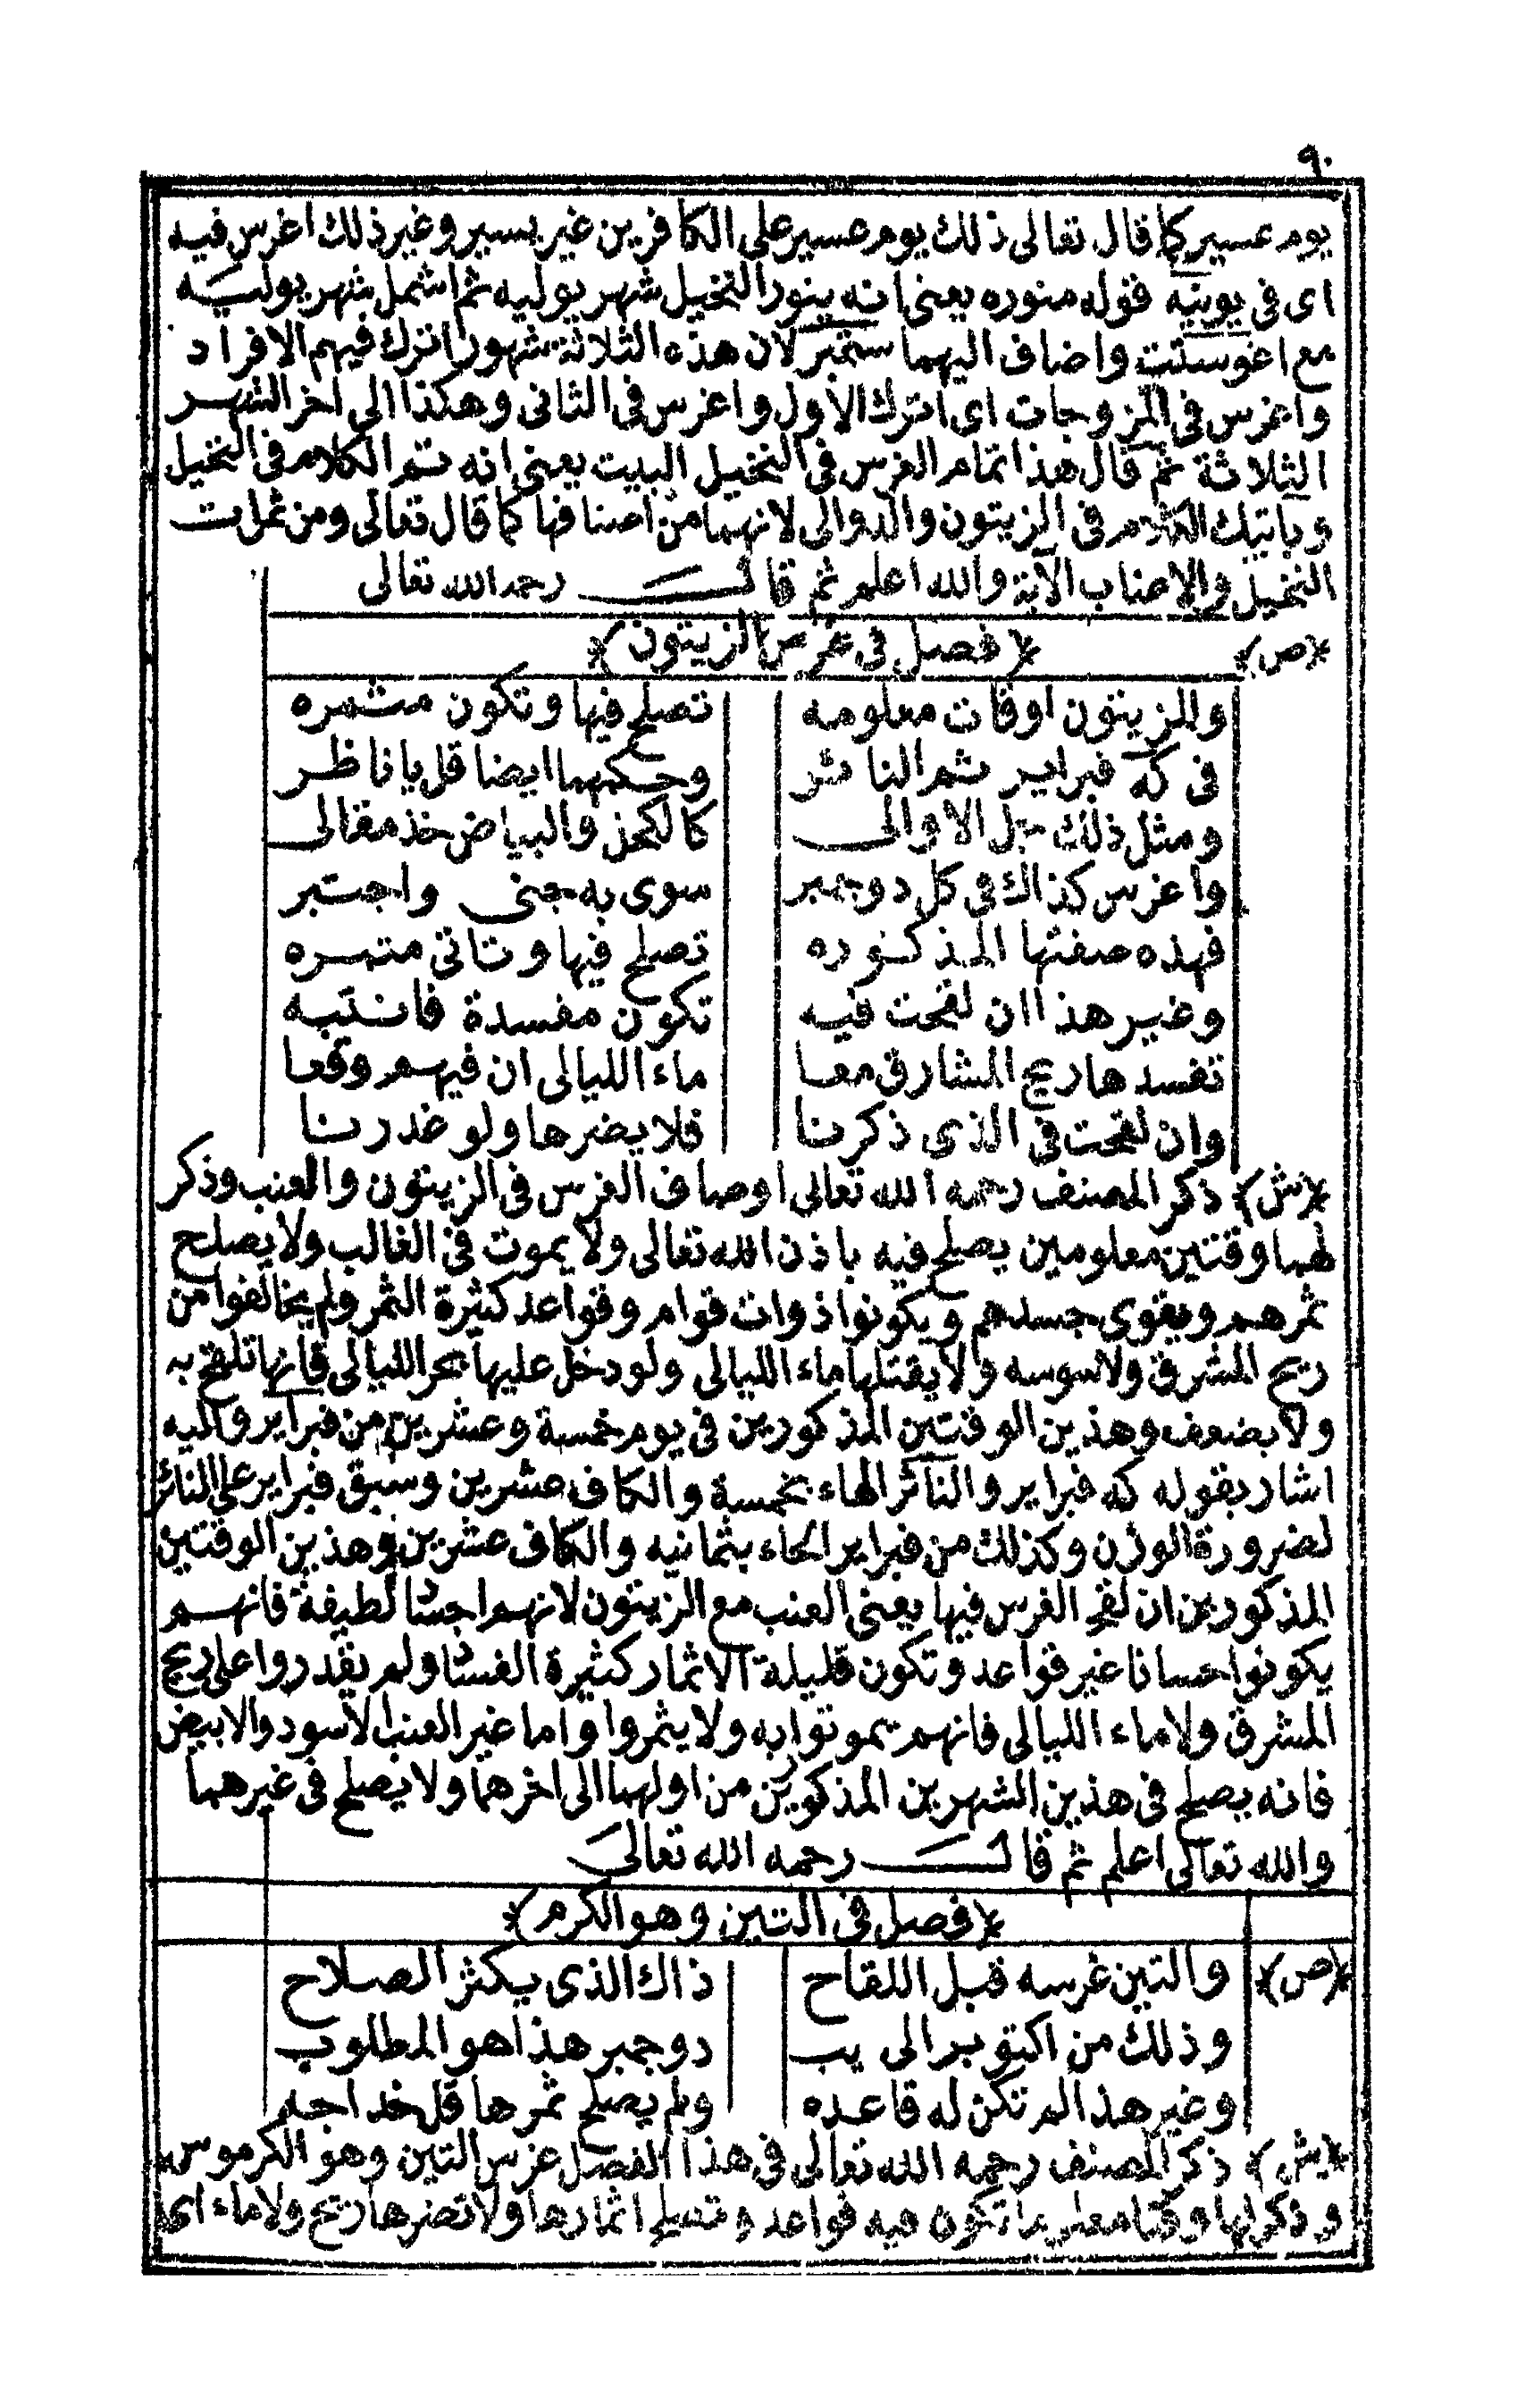 ٩٠
يوم عسير كما قال تعالى ذلك يوم عسير على الكافرين غير يسير وغير ذلك اغرس فيه
اى فى يونيه قوله منوره يعنى انه ينور النخيل شهر يوليه ثم اشمل شهر يوليه
مع اغوستت واضاف اليهما ستنبر لان هذه الثلاثة شهور اترك فيهم الافراد
واغرس فى المزوجات اى اترك الأول واغرس فى الثانى وهكذا الى اخر الشهر
الثلاثة ثم قال هذا تمام الغرس فى النخيل البيت يعنى انه تم الكلام فى النخيل
ويأتيك الكلام فى الزيتون والدوالى لانهما من اصنافها كما قال تعالى ومن ثمرات
النخيل والاعناب الآية والله اعلم ثم قال رحمه الله تعالى
(ص) (فصل فى غرس الزيتون)
وللزيتون اوقات معلومه تصلح فيها وتكون مثمره
فى كه فبراير ثم النائر وحكمهما ايضا قل يا ناظر
ومثل ذلك الاوالى كالكحل والبياض خذ مقالى
واغرس كذاك فى كل دوجمبر سوى به جنى واجتبر
فهذه صفتها المذكوره تصلح فيها وتاتى متمره
وغير هذا ان لقحت فيه تكون مفسدة فانتبه
تفسدها ريح المشارق معا ماء الليالى ان فيهم وقعا
وان لقحت فى الذى ذكرنا فلا يضرها ولو غدرنا
(ش) ذكر المصنف رحمه الله تعالى اوصاف الغرس فى الزيتون والعنب وذكر
لهما وقتين معلومين يصلح فيه باذن الله تعالى ولا يموت فى الغالب ولا يصلح
ثمرهم ويقوى جسدهم ويكونوا ذوات قوام وقواعد كثيرة الثمر ولم يخالفوا من
ريح المشرق ولا سوسه ولا يقتلها ماء الليالى ولو دخل عليها بحر الليالى فانها تلقح به
ولا يضعف وهذين الوقتين المذكورين فى يوم خمسة وعشرين من فبراير واليه
اشار بقوله كه فبراير والنائر الهاء بخمسة والكاف عشرين وسبق فبراير على النائر
لضرورة الوزن وكذلك من فبراير الحاء بثمانيه والكاف عشرين وهذين الوقتين
المذكورين ان لقح الغرس فيها يعنى العنب مع الزيتون لانهم اجسا لطيفة فانهم
يكونوا حسانا غير قواعد وتكون قليلة الاثمار كثيرة الفسا ولم يقدروا على ريح
المشرق ولا ماء الليالى فانهم يموتوا به ولا يثمروا واما غير العنب الاسود والابيض
فانه يصلح فى هذين الشهرين المذكورين من اولهما الى اخرهما ولا يصلح فى غيرهما
والله تعالى اعلم ثم قال رحمه الله تعالى
(فصل فى التين وهو الكرم)
(ص) والتين غرسه قبل اللقاح ذاك الذى يكثر الصلاح
وذلك من اكتوبر الى يب دوجمبر هذا هو المطلوب
وغير هذا لم تكن له قاعده ولم يصلح ثمرها قل خداجه
(ش) ذكر المصنف رحمه الله تعالى فى هذا الفصل غرس التين وهو الكرموس
وذكر لها وقتا معلوما تكون فيه قواعد وتصلح اثمارها ولا تضرها ريح ولا ماء اى